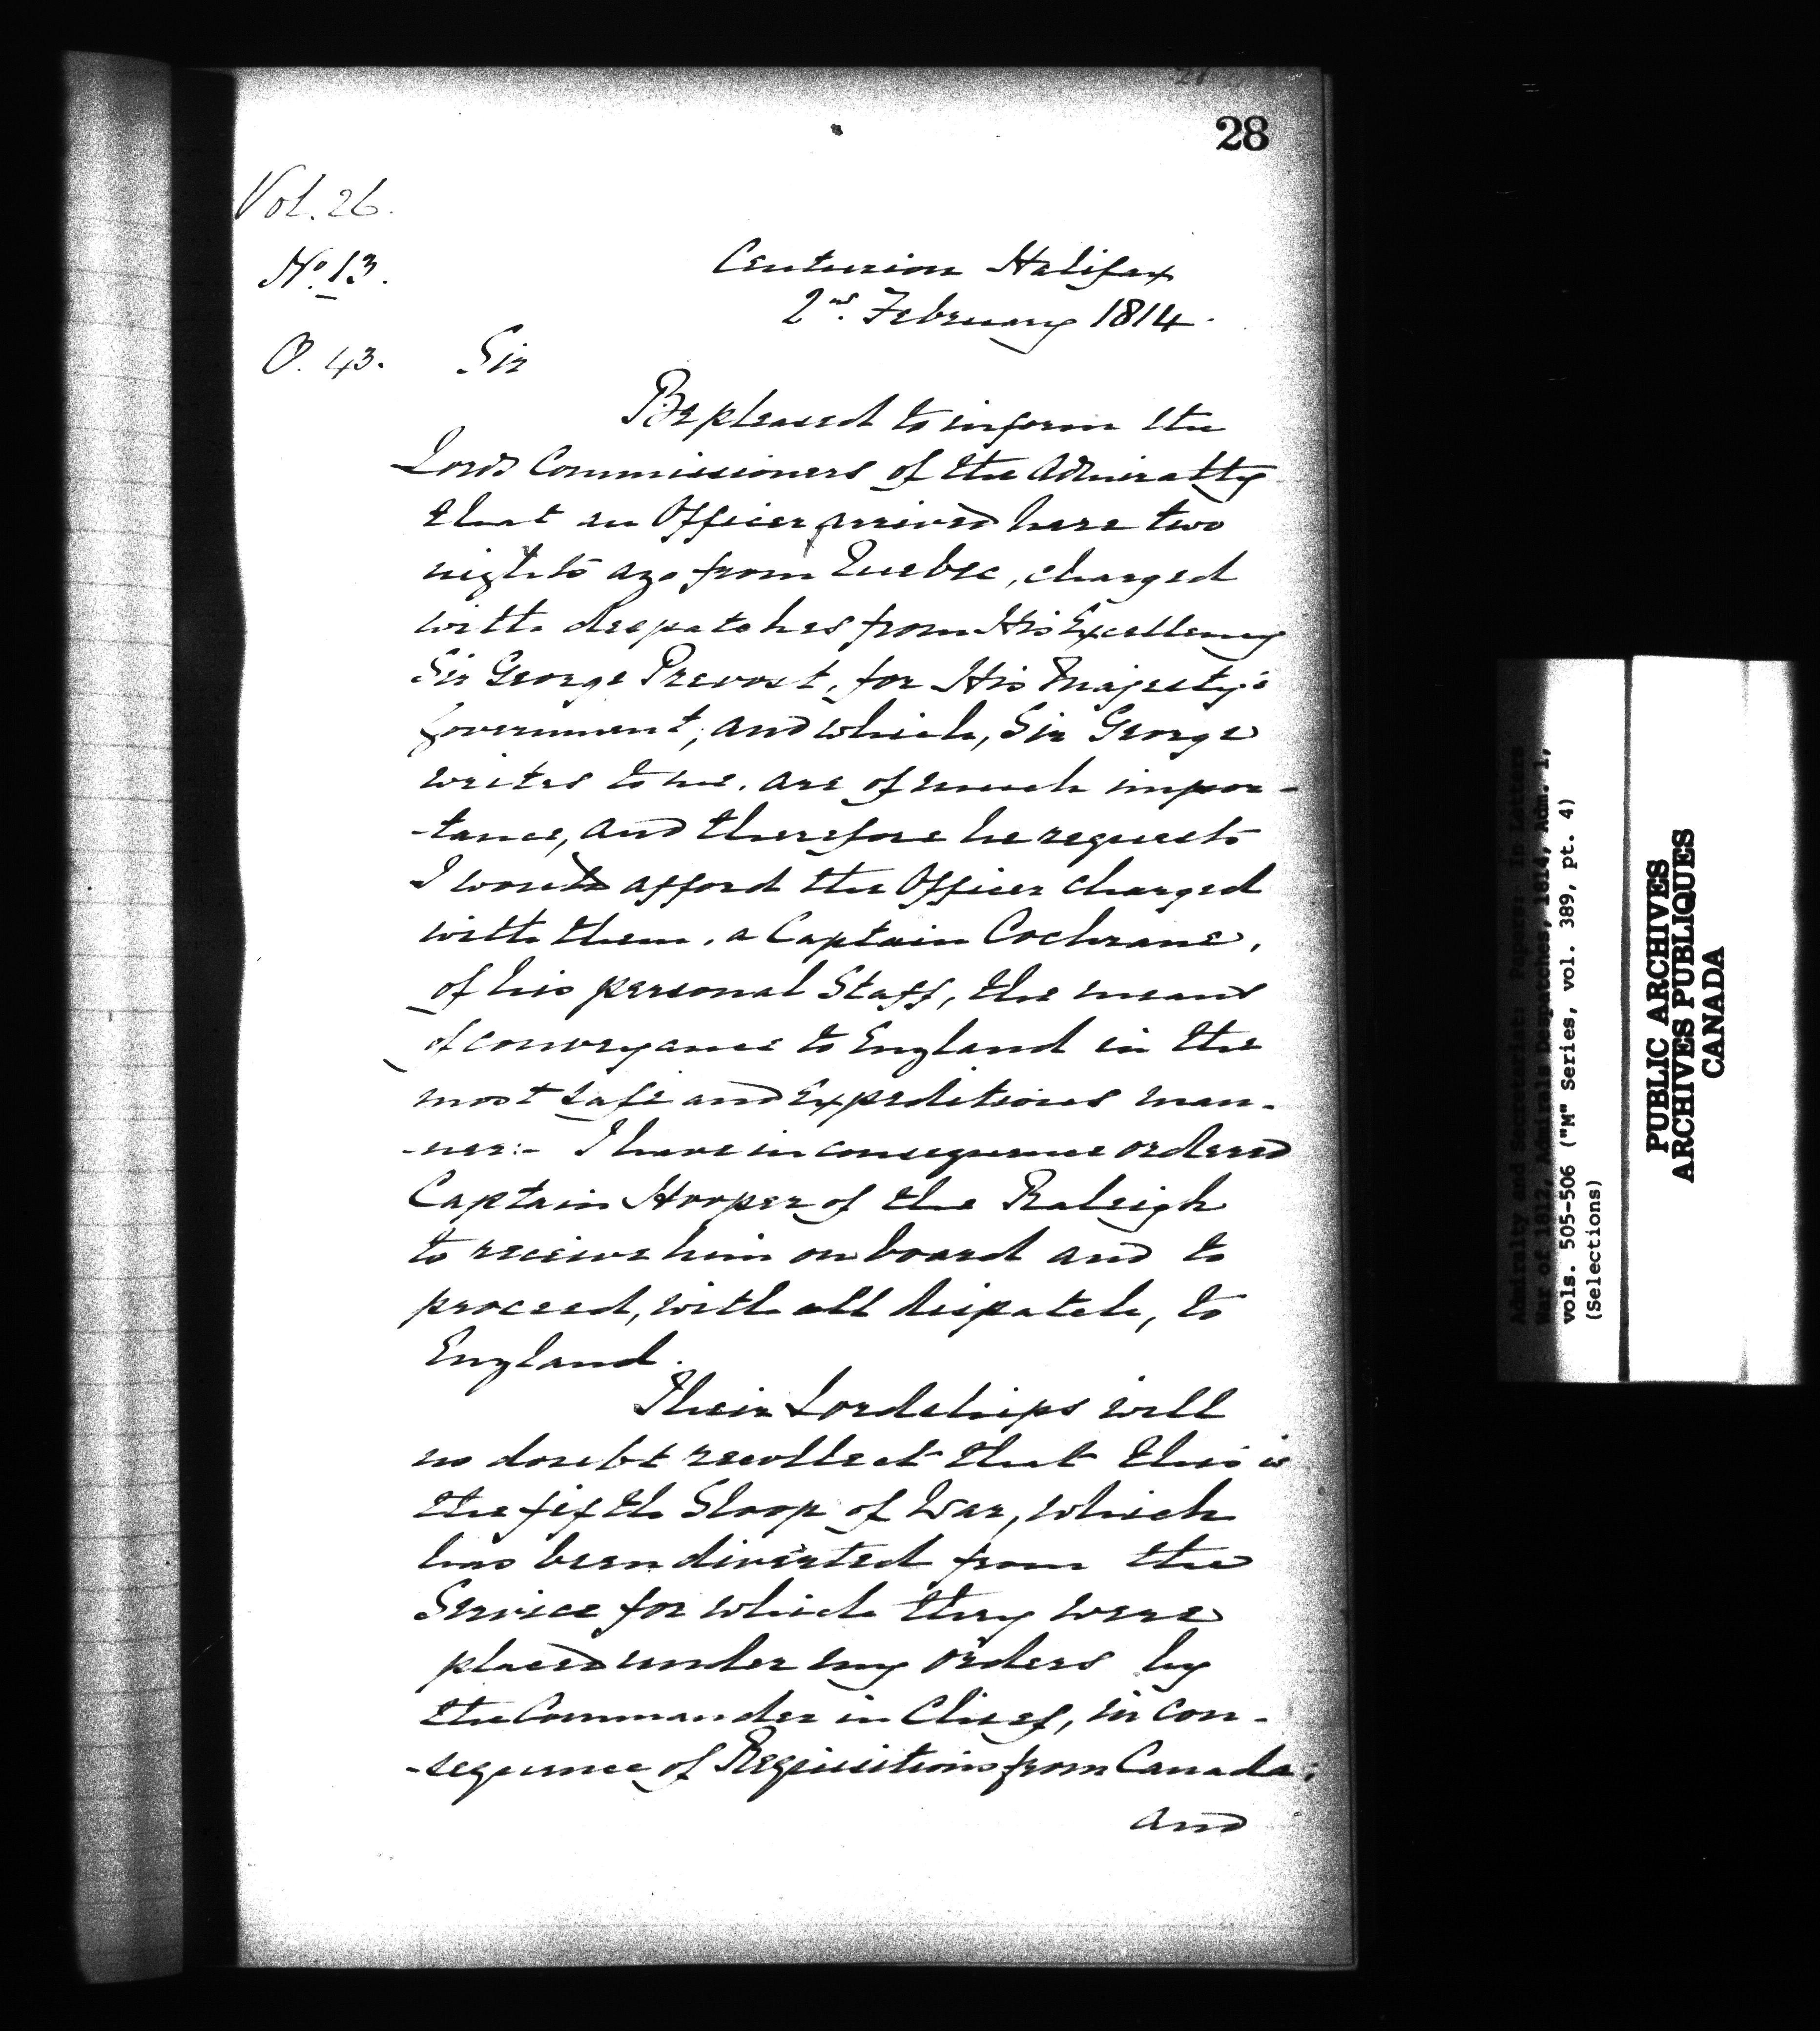 28
Vol. 26.
No. 13.
Centurion Halifax
2nd. February 1814.
O. 43. Sir
Be pleased to inform the
Lords Commissioners of the Admiralty
that an Officer arrived here two
nights ago from Quebec, charged
with despatches from His Excellency
Sir George Prevost, for His Majesty's
Government, and which, Sir George
writes to me, are of much impor-
-tance, and therefore he requests
I would afford the Officer charged
with them, a Captain Cochrane,
of his personal Staff, the means
of conveyance to England in the
most safe and expeditious man-
-ner:- I have in consequence ordered
Captain Hooper of the Raleigh
to receive him on board and to
proceed, with all dispatch, to
England.
Their Lordships will
no doubt recollect that this is
the fifth Sloop of War, which
has been diverted from the
Service for which they were
placed under my orders by
the Commander in Chief, in con-
-sequence of Requisitions from Canada;
and
Admiralty and Secretariat: Papers: In Letters
War of 1812, Admirals Despatches, 1814, Adm. 1,
vols. 505-506 ("M" Series, vol. 389, pt. 4)
(Selections)
PUBLIC ARCHIVES
ARCHIVES PUBLIQUES
CANADA